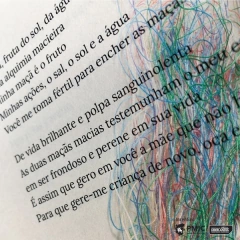 , fruta do sol, da água
alquimia macieira
inha maçã é o fruto
Minhas ações, o sal, o sol e a água
Você me toma fértil para encher as maçã
De vida brilhante e polpa sanguinolenta
As duas maçãs macias testemunham o meu e
em ser frondoso e perene em sua vida
É assim que gero em você a mãe que não
Para que gere-me criança de novo, oca e